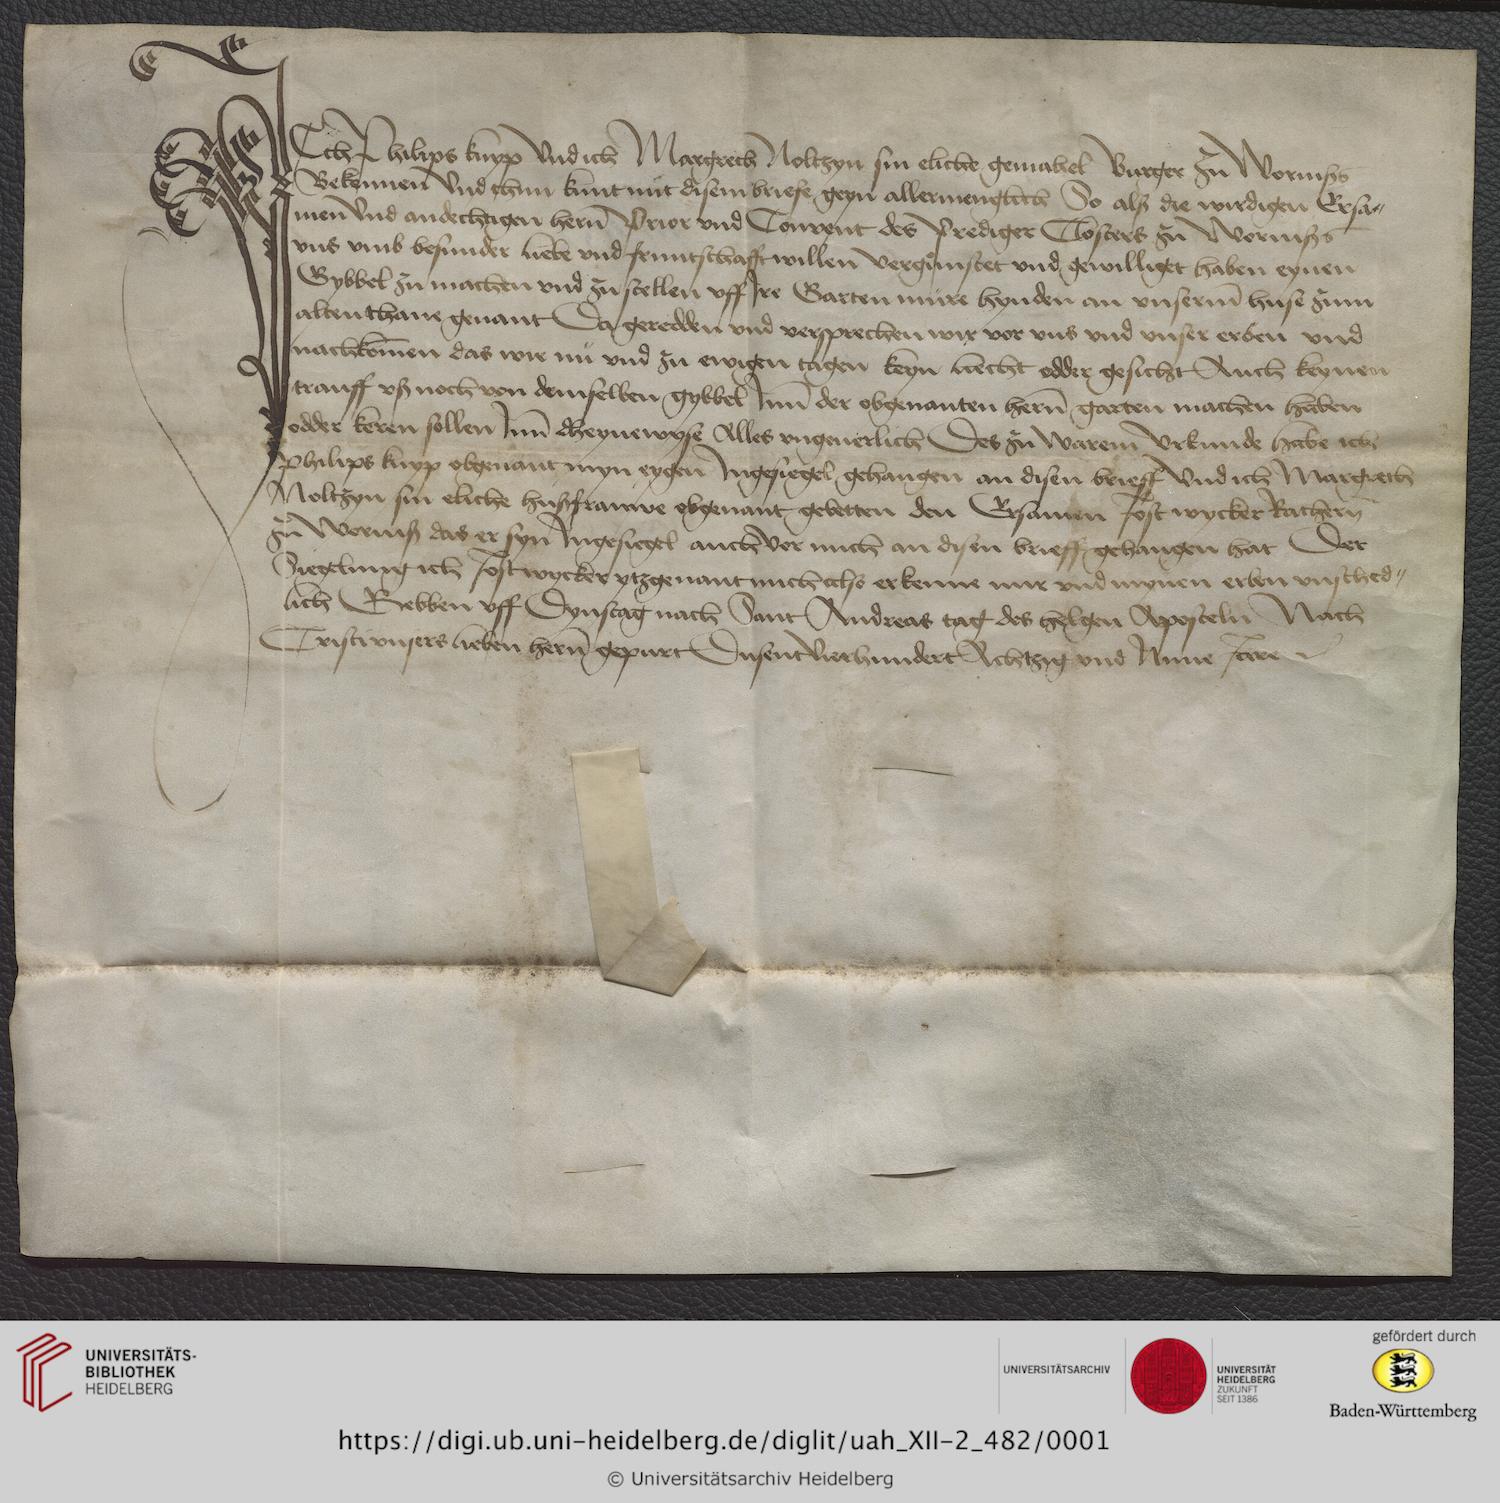 Ich Philips knyp Vnd ich Margreth Noltzyn sin eliche gemahel Burger zu Wormßs
Bekennen Vnd thun kunt mit disem briefe geyn allermenglich So alß die wirdigen Ersa-
men Vnd andechtigen hern̄ Prior vnd Convent des Prediger Closters zu Wormßs
vns vmb besunder liebe vnd fruntschafft willen vergünstet vnd gewilliget haben eynen
Gybbel zu machen vnd zu stellen vff Ire Garten mure hynden an vnserm̄ huse zum
alten thane genant Da geredden vnd versprechen wir vor vns vnd vnser erben vnd
nachkōmen das wir nü vnd zu ewigen tagen keyn liecht odder gesicht Auch keynen
trauff vß noch von demselben gybbel Inn̄ der obgenanten hern̄ garten machen haben
odder keren sollen Inn̄ dheynewyse Alles vngeuerlich Des zu warem Vrkunde habe ich
Philips knyp obgenant myn eygen Ingesiegel gehangen an disen brieff Vnd ich Margreth
Noltzyn sin eliche hußfrauwe obgenant gebetten den Ersamen Jost wycker Rathern̄
zu Wormß das er syn Ingesiegel auch vor mich an disen brieff gehangen hat Der
Siegelung ich Jost wycker ytzgenant mich also erkenne mir vnd mynen erben vnsched-
lich Gebben vff Dynstag nach Sant Andreas tag des helgen Aposteln Nach
Cristi vnsers lieben hern̄ gepurt Dusent Vierhundert Achtzig vnd Nune Jare
UNIVERSITÄTS-
BIBLIOTHEK
HEIDELBERG
UNIVERSITÄTSARCHIV
UNIVERSITÄT
HEIDELBERG
ZUKUNFT
SEIT 1386
gefördert durch
Baden-Württemberg
https://digi.ub.uni-heidelberg.de/diglit/uah_XII-2_482/0001
© Universitätsarchiv Heidelberg